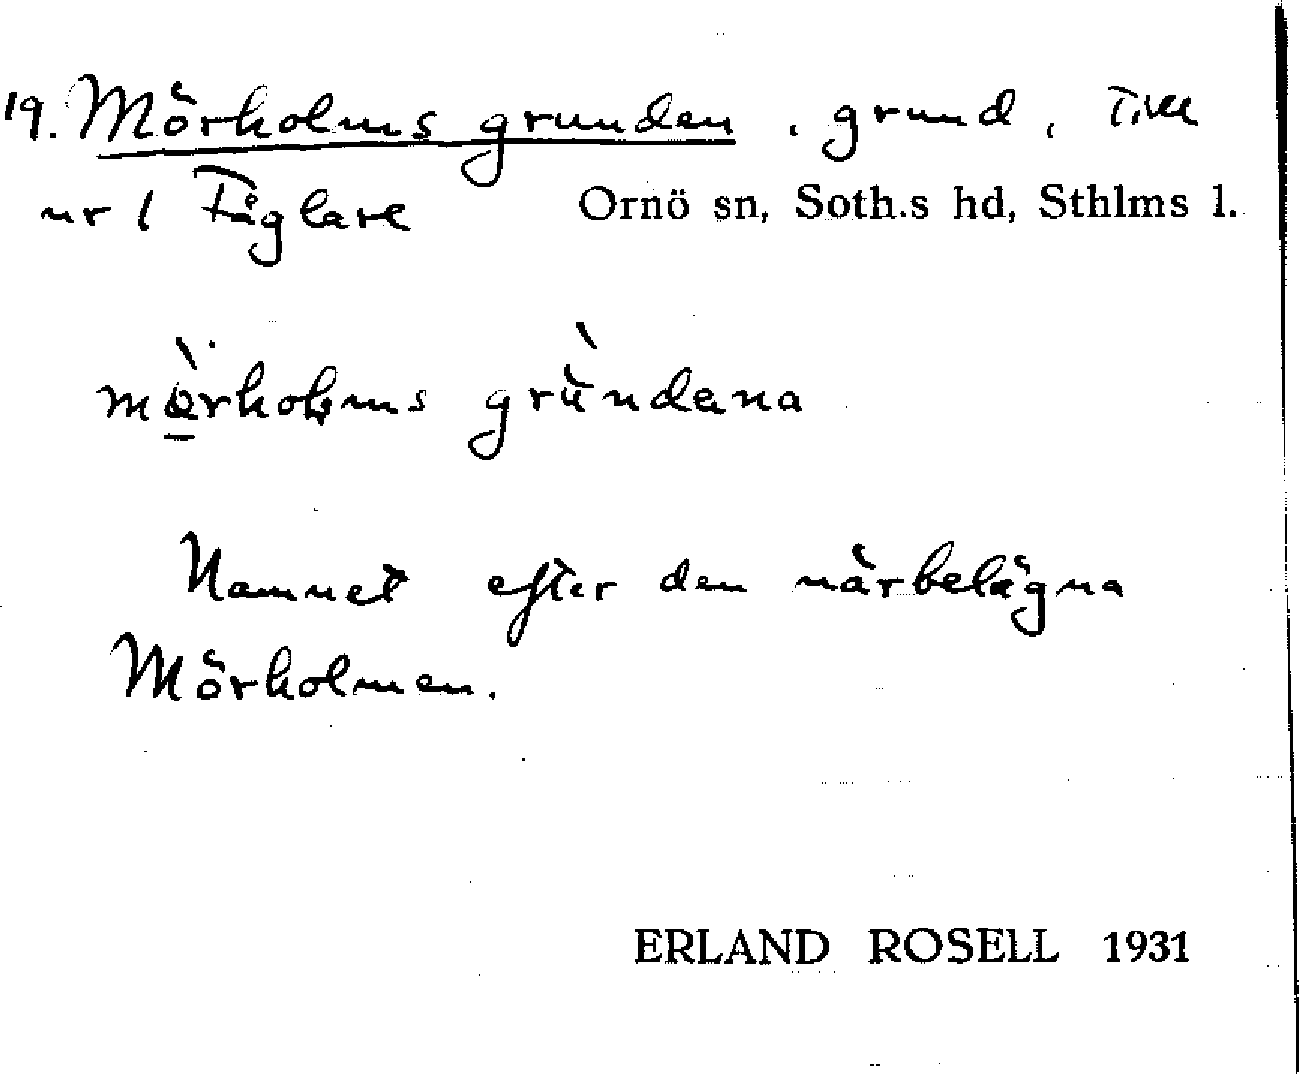 19. Mörholms grunden, grund, Till
nr 1 Fåglarö Ornö sn, Soth.s hd, Sthlms l.
mö̀rholms grùndana
Namnet efter den närbelägna
Mörholmen.
ERLAND ROSELL 1931